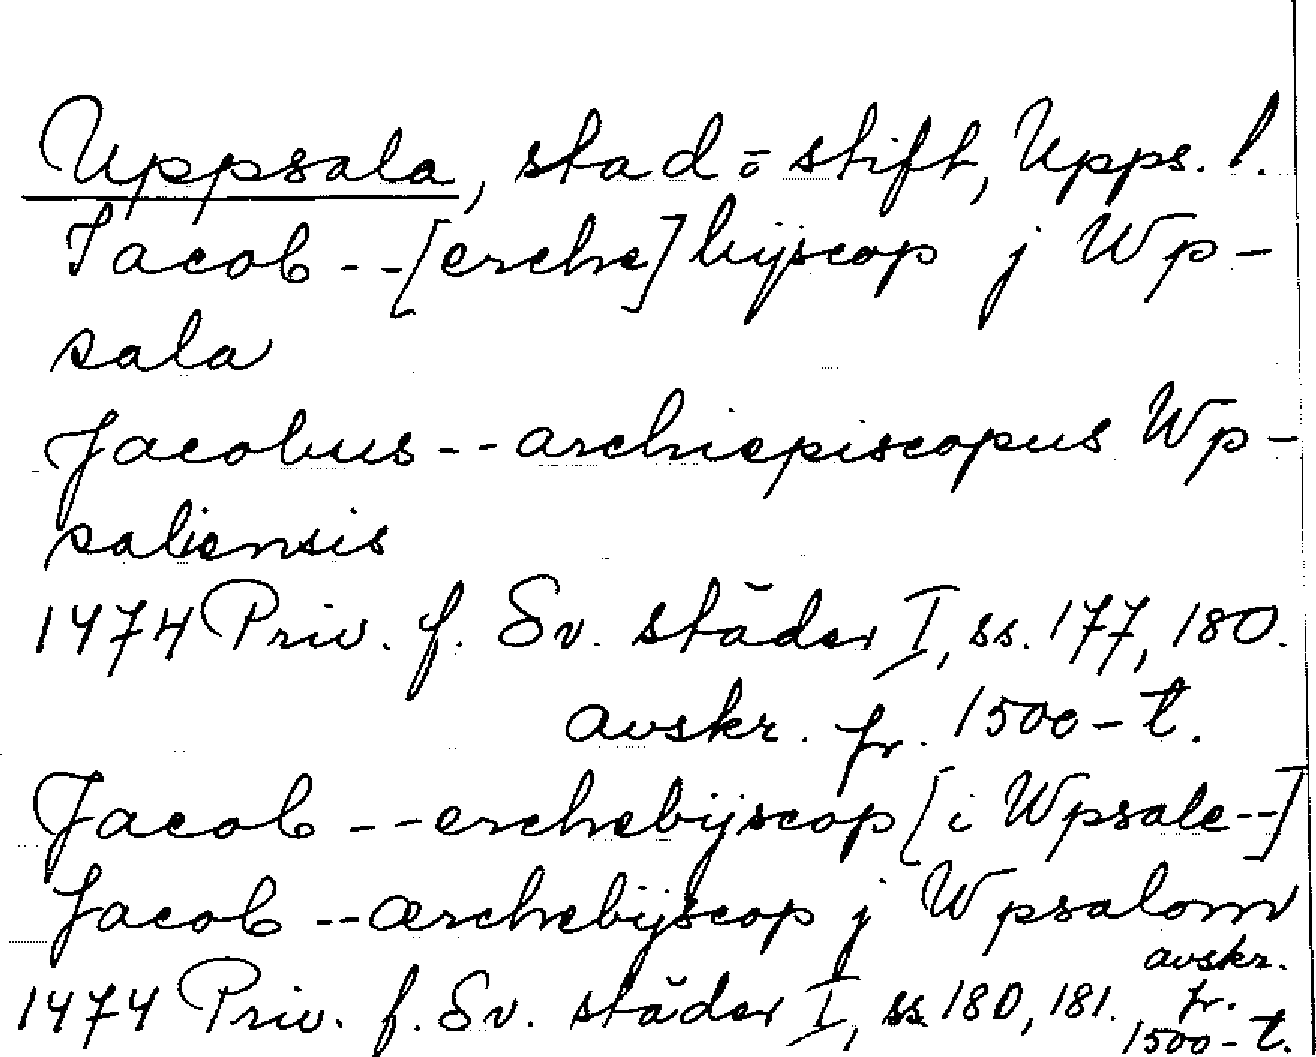 Uppsala, stad o stift, Upps. l.
Jacob - -[erche] bijscop j Wp-
sala
Jacobus - - archiepiscopus Wp-
saliensis
1474 Priv. f. Sv. städer I, ss. 177, 180.
avskr. fr. 1500-t.
Jacob - - erchebijscop [i Wpsale--]
Jacob - - ærchebijscop j Wpsalom
1474 Priv. f. Sv. städer I, ss. 180, 181. avskr.
fr.
1500-t.